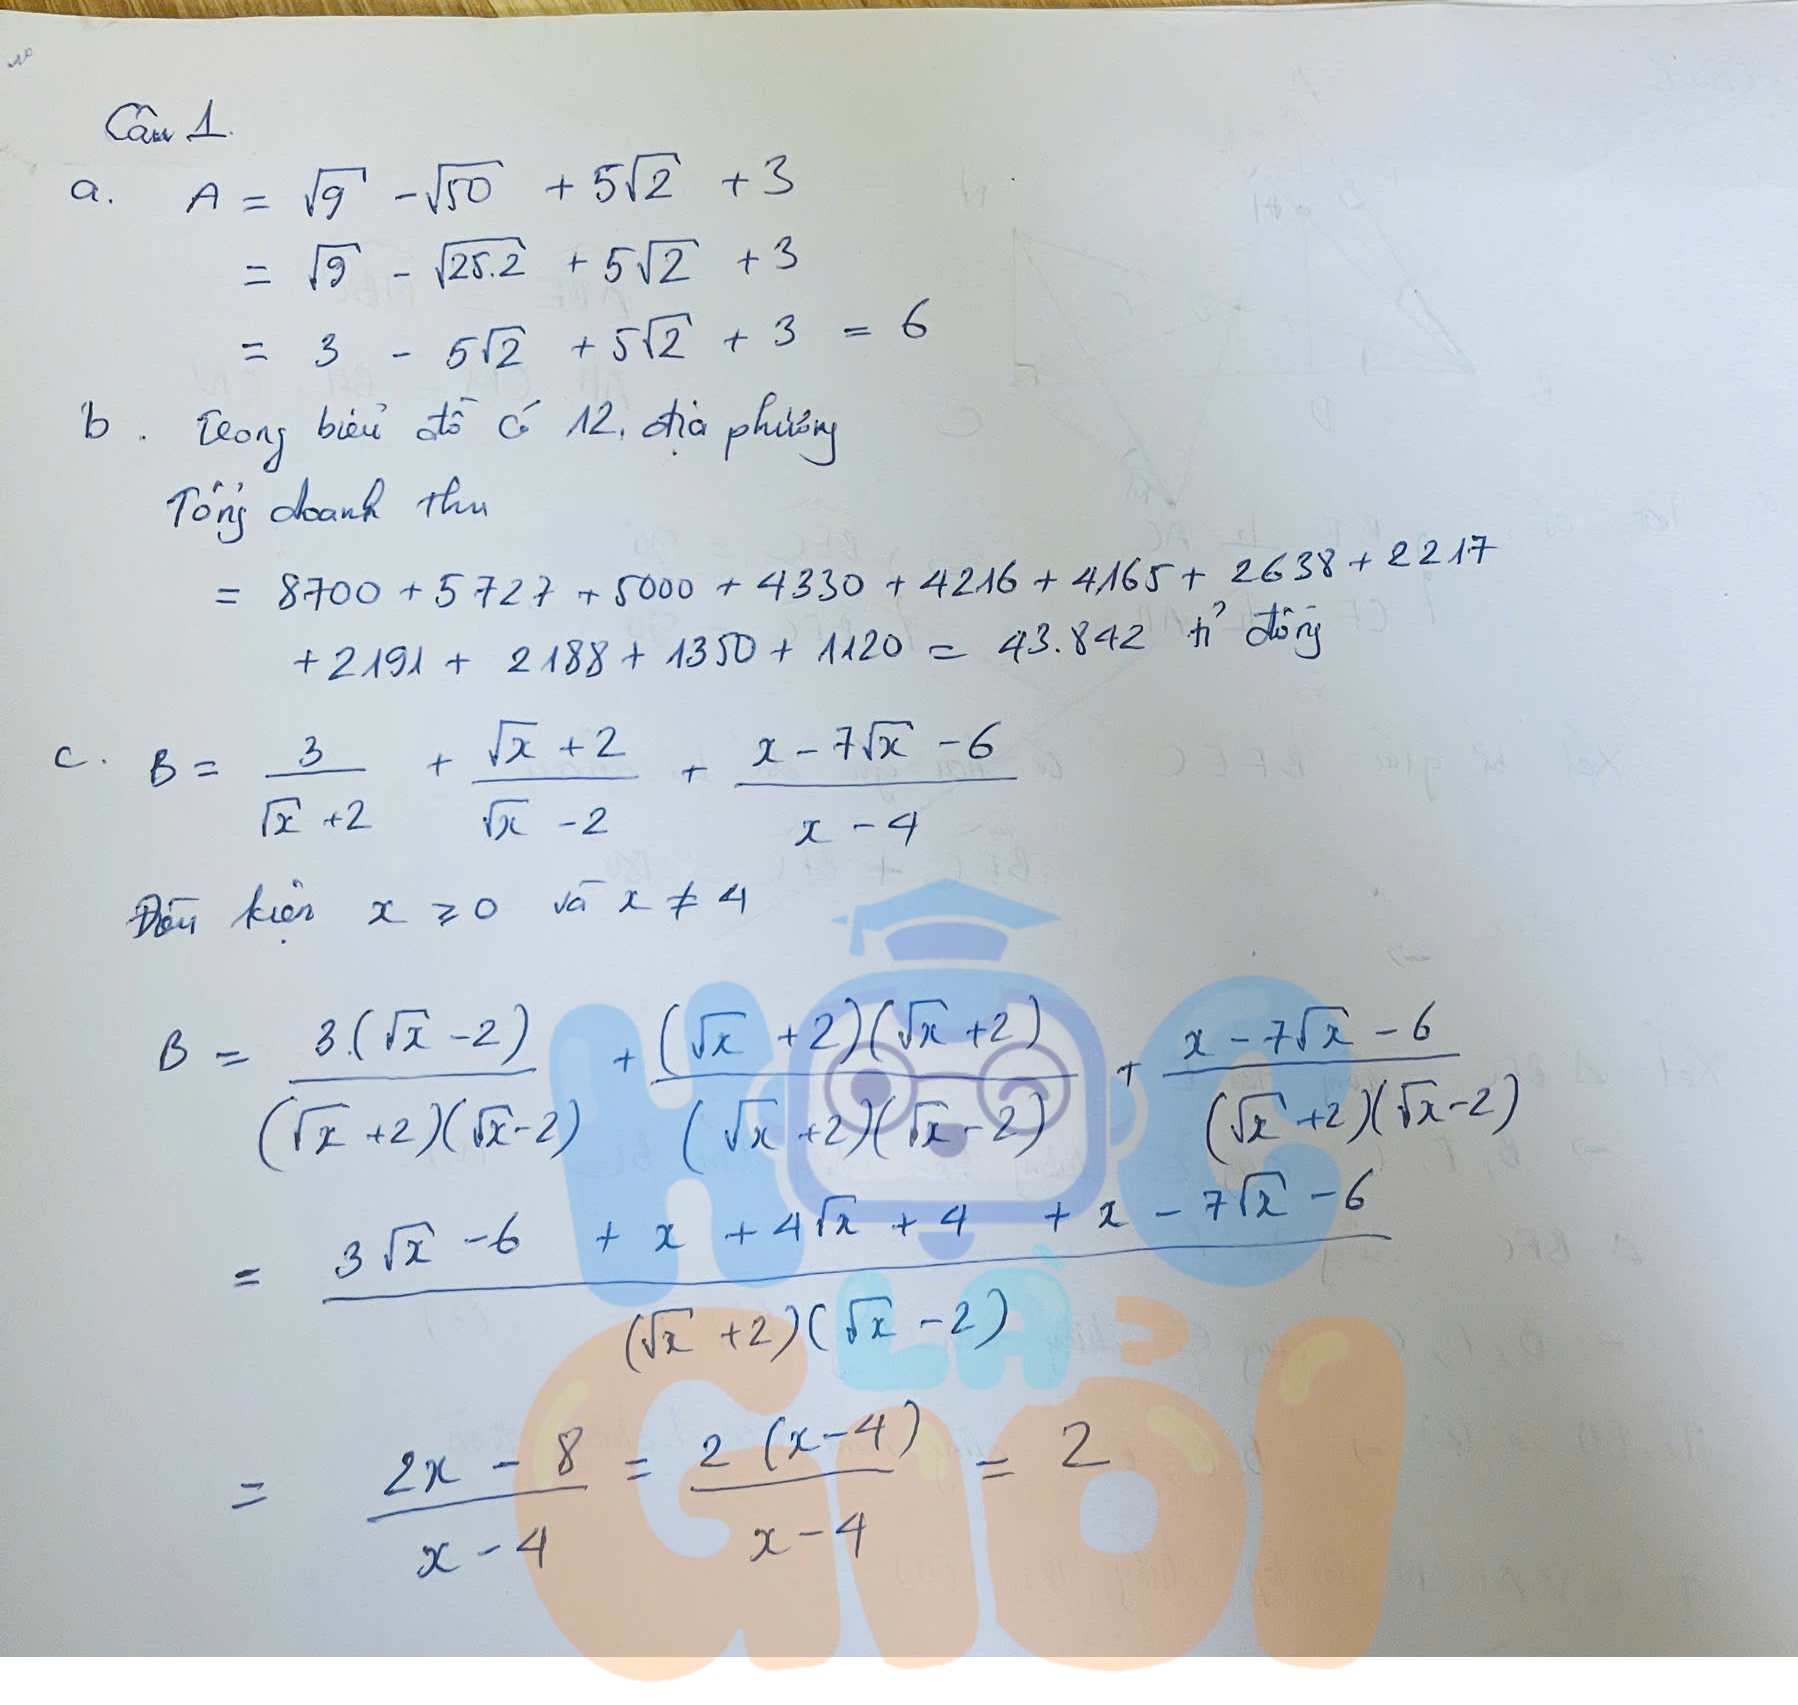 Câu 1.
a. A = √9 - √50 + 5√2 + 3
= √9 - √25.2 + 5√2 + 3
= 3 - 5√2 + 5√2 + 3 = 6
b. Trong biểu đồ có 12 địa phương
Tổng doanh thu
= 8700 + 5727 + 5000 + 4330 + 4216 + 4165 + 2638 + 2217
+ 2191 + 2188 + 1350 + 1120 = 43.842 tỉ đồng
c. B = 3/(√x + 2) + (√x + 2)/(√x - 2) + (x - 7√x - 6)/(x - 4)
Điều kiện x ≥ 0 và x ≠ 4
B = 3.(√x - 2)/((√x + 2)(√x - 2)) + (√x + 2)(√x + 2)/((√x + 2)(√x - 2)) + (x - 7√x - 6)/((√x + 2)(√x - 2))
= (3√x - 6 + x + 4√x + 4 + x - 7√x - 6)/((√x + 2)(√x - 2))
= (2x - 8)/(x - 4) = 2(x - 4)/(x - 4) = 2
HỌC
LÀ
GIỎI